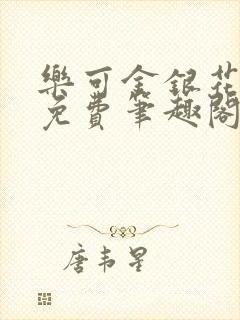 樂可金銀花
免費筆趣閣
唐韋星